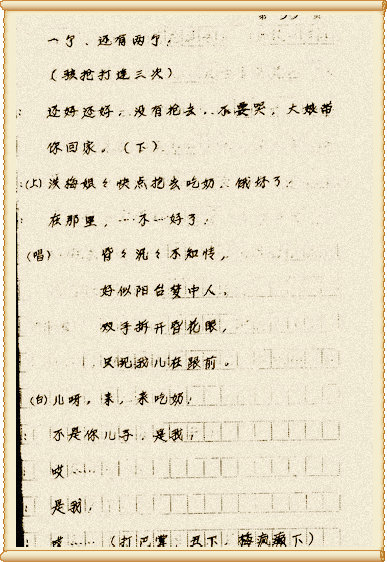 第 37 页
一个、还有两个。
(孩抢打逢三次)
还好还好,没有抢去,不要哭,大娘带
你回家。(下)
(上)淡梅娘々快点抱去吃奶,饿坏了。
在那里,一不一好了。
(唱) 昏々沉々不知情,
好似阳台梦中人,
双手拆开昏花眼,
只见我儿在跟前。
(白)儿呀,来,来吃奶,
不是你儿子,是我,
哎……
是我,
哎……(打巴掌,丑下,梅疯癫下)